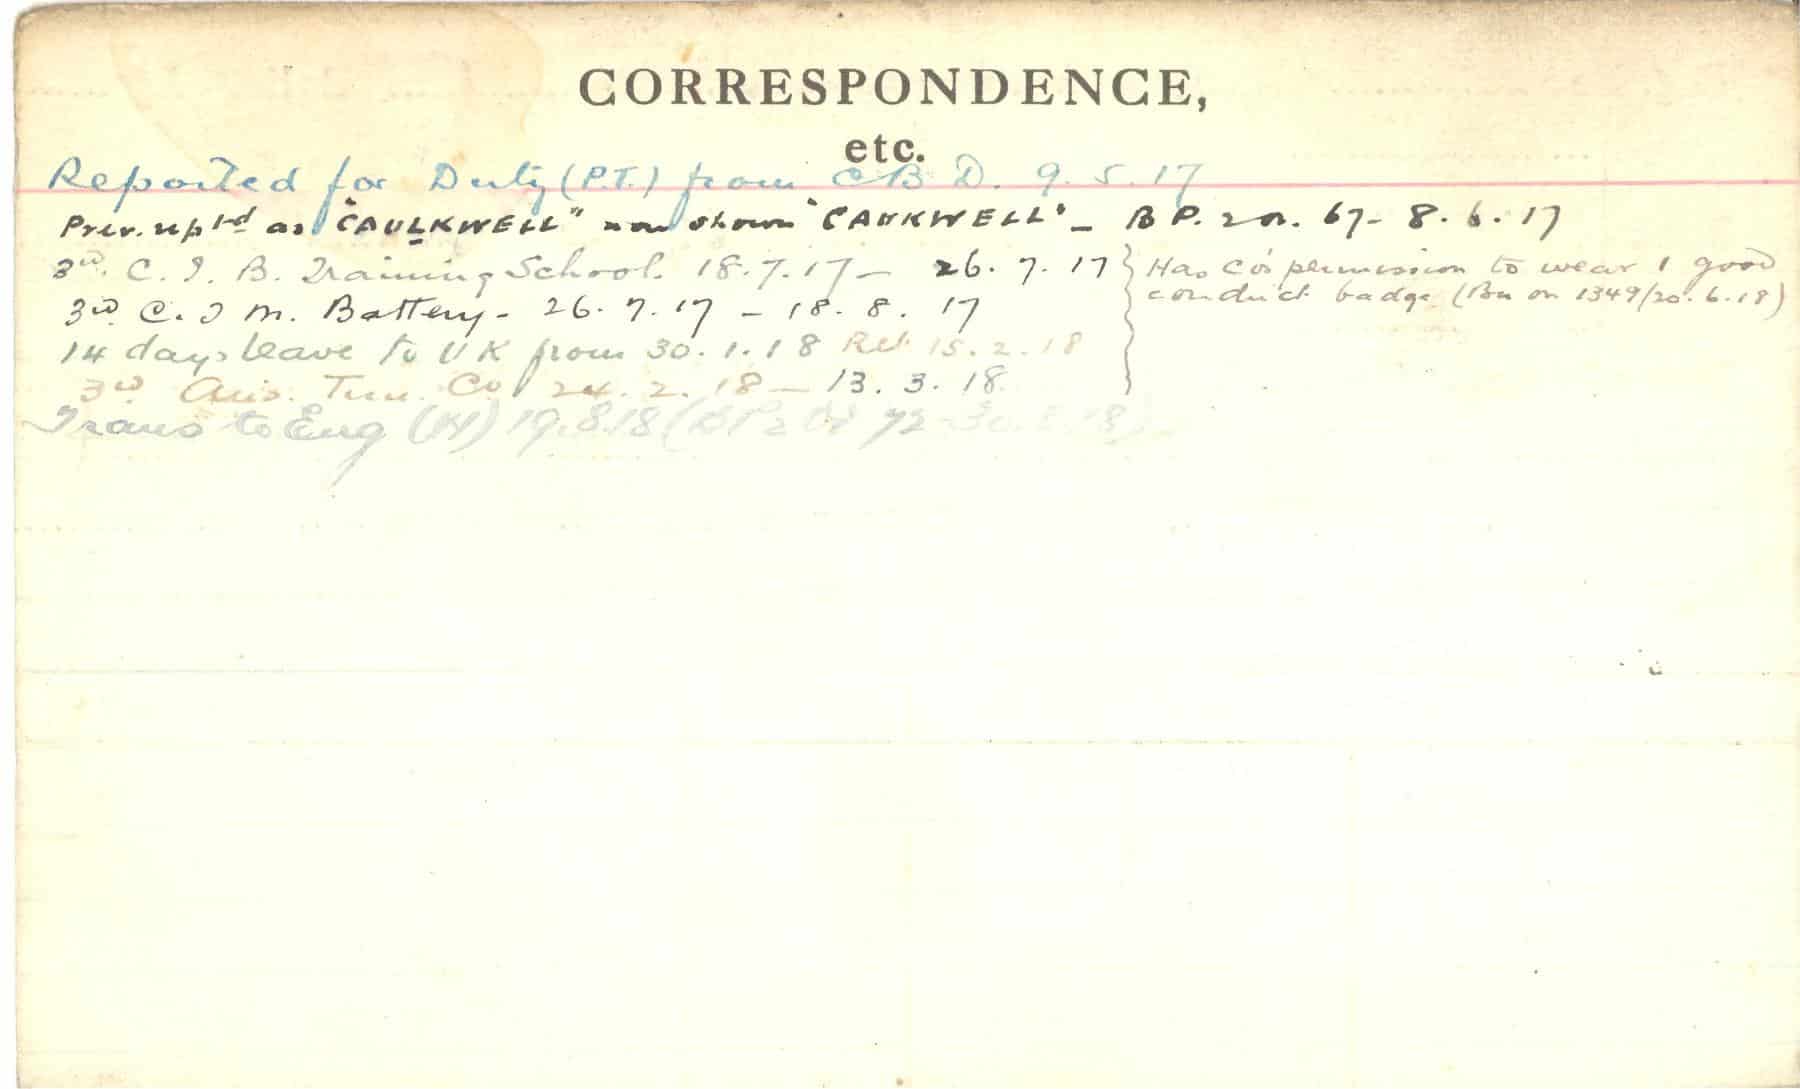 CORRESPONDENCE,
etc.
Reported for Duty (P.T.) from C B D. 9. 5. 17
Prev. rep'td as "CAULKWELL" now shown "CAUKWELL" - B P. 2 67 - 8. 6. 17
3rd. C. I. B. Training School. 18. 7. 17 - 26. 7. 17
Has Co's permission to wear 1 good
conduct badge (Bn on 1349/20. 6. 18)
3rd. C. I M. Battery - 26. 7. 17 - 18. 8. 17
14 days leave to U K from 30. 1. 18 Ret 15. 2. 18
3rd Aus. Tun. Co 24. 2. 18 - 13. 3. 18
Trans to Eng 19.8.18